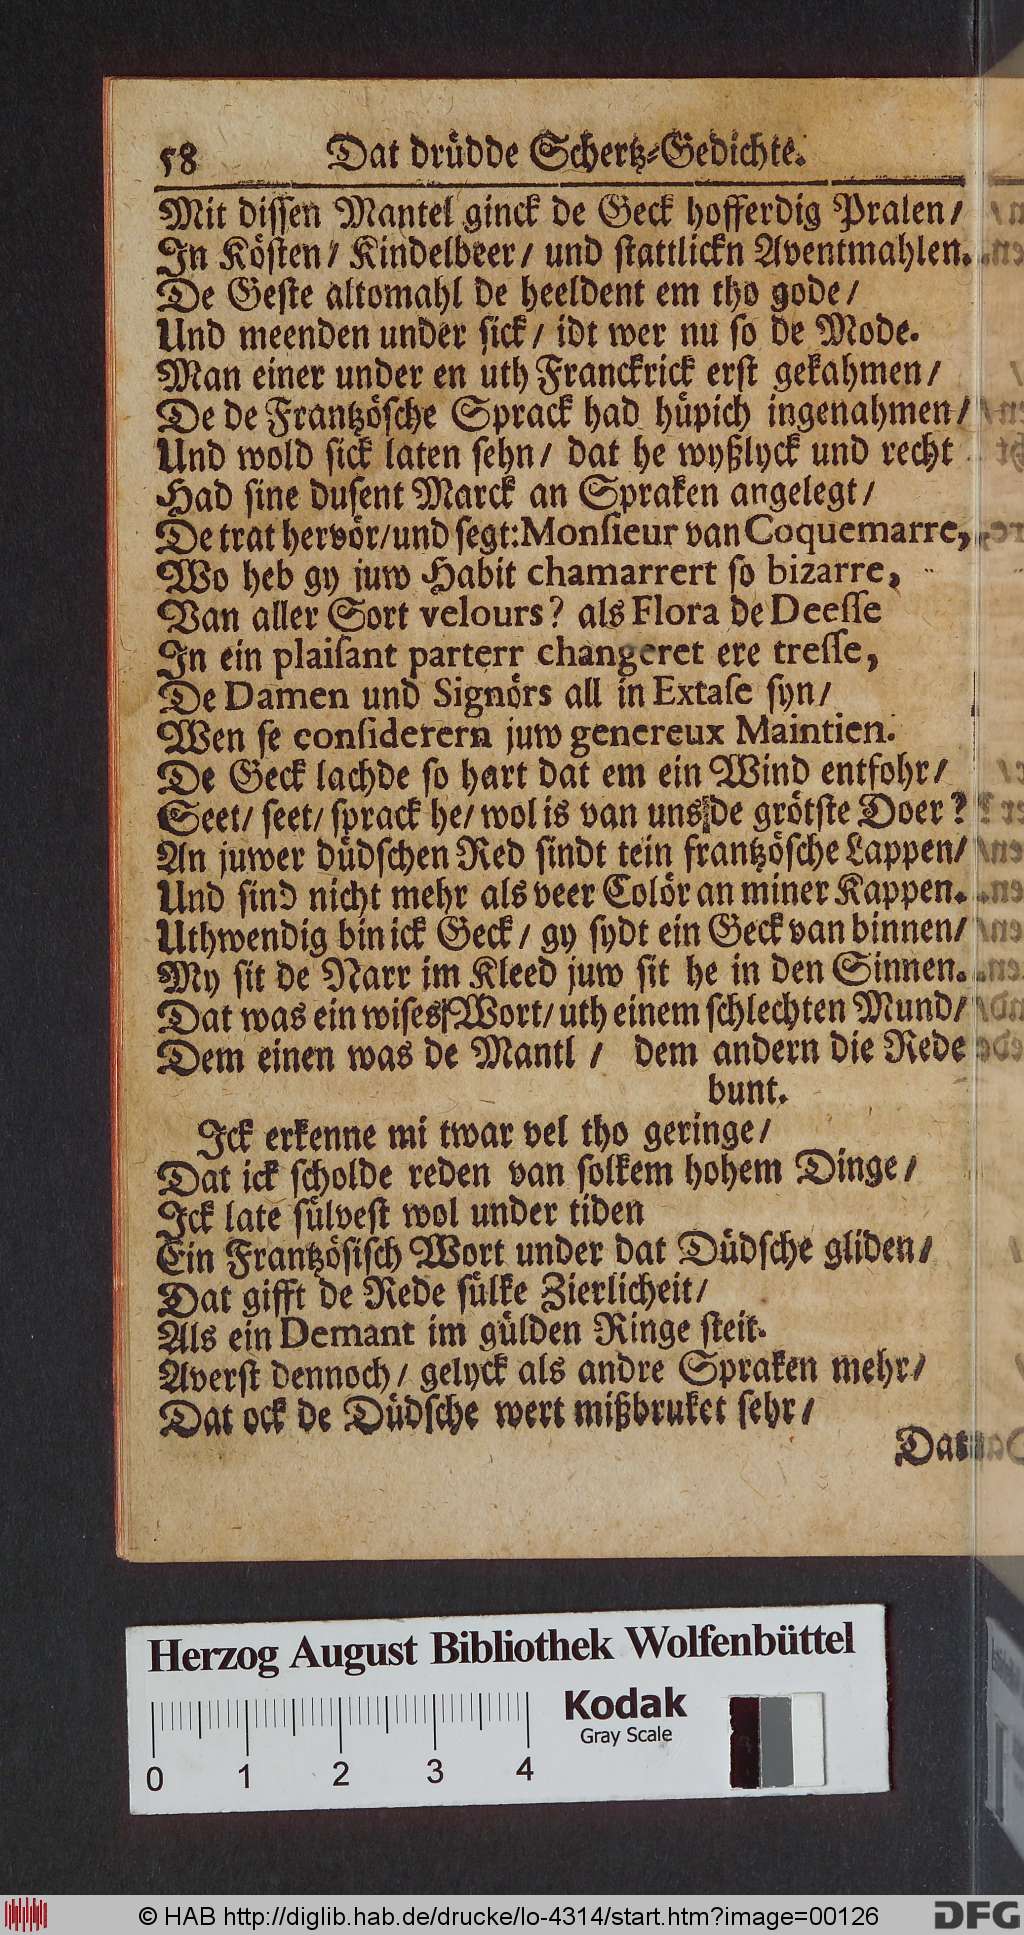 58 Dat drüdde Schertz-Gedichte.
Mit dissen Mantel ginck de Geck hofferdig Pralen/
In Kösten/ Kindelbeer/ und stattlickn Aventmahlen.
De Geste altomahl de heeldent em tho gode/
Und meenden under sick/ idt wer nu so de Mode.
Man einer under en uth Franckrick erst gekahmen/
De de Frantzösche Sprack had hüpich ingenahmen/
Und wold sick laten sehn/ dat he wyßlyck und recht
Had sine dusent Marck an Spraken angelegt/
De trat hervör/und segt:Monsieur van Coquemarre,
Wo heb gy juw Habit chamarrert so bizarre,
Van aller Sort velours? als Flora de Deesse
In ein plaisant parterr changeret ere tresse,
De Damen und Signörs all in Extase syn/
Wen se considerern juw genereux Maintien.
De Geck lachde so hart dat em ein Wind entfohr/
Seet/ seet/ sprack he/ wol is van uns de grötste Doer?
An juwer düdschen Red sindt tein frantzösche Lappen/
Und sind nicht mehr als veer Colör an miner Kappen.
Uthwendig bin ick Geck/ gy sydt ein Geck van binnen/
My sit de Narr im Kleed juw sit he in den Sinnen.
Dat was ein wises Wort/ uth einem schlechten Mund/
Dem einen was de Mantl / dem andern die Rede
bunt.
Ick erkenne mi twar vel tho geringe/
Dat ick scholde reden van solkem hohem Dinge/
Ick late sülvest wol under tiden
Ein Frantzösisch Wort under dat Düdsche gliden/
Dat gifft de Rede sülke Zierlicheit/
Als ein Demant im gülden Ringe steit.
Averst dennoch/ gelyck als andre Spraken mehr/
Dat ock de Düdsche wert mißbruket sehr/
Dat
Herzog August Bibliothek Wolfenbüttel
Kodak
Gray Scale
0 1 2 3 4
© HAB http://diglib.hab.de/drucke/lo-4314/start.htm?image=00126
DFG